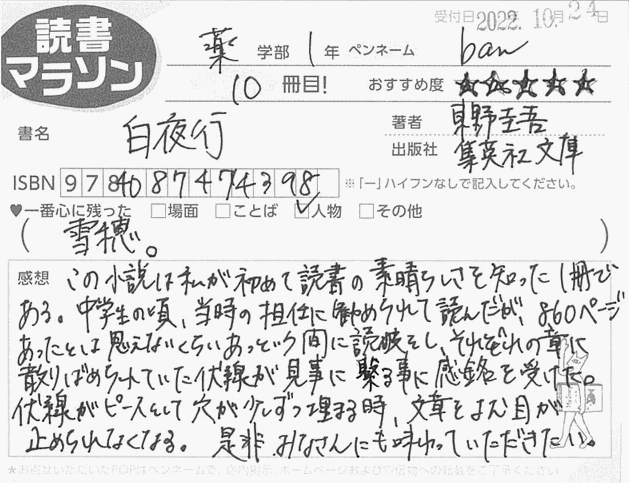 受付日 2022年 10月 24日
読書
マラソン
薬 学部 1 年 ペンネーム ban
10 冊目! おすすめ度 ★★★★★
書名 白夜行
著者 東野圭吾
出版社 集英社文庫
ISBN 9784087474398 ※「ー」ハイフンなしで記入してください。
♥一番心に残った □場面 □ことば ☑人物 □その他
( 雪穂。 )
感想 この小説は私が初めて読書の素晴らしさを知った1冊で
ある。中学生の頃、当時の担任に勧められて読んだが、860ページ
あったとは思えないくらいあっという間に読破をし、それぞれの章に
散りばめられていた伏線が見事に繋る事に感銘を受けた。
伏線がピースとして穴が少しずつ埋まる時、文章をよむ目が
止められなくなる。是非みなさんにも味わっていただきたい。
★お寄せいただいたPOPはペンネームで、店内掲示、ホームページおよび